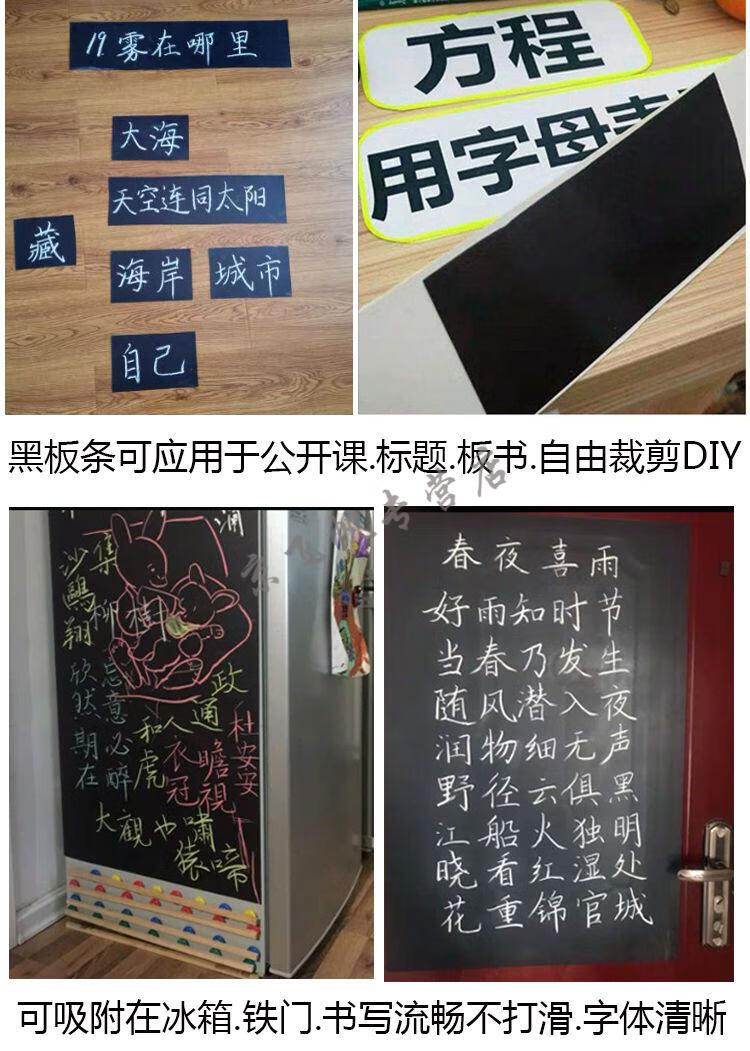 19.雾在哪里
大海
天空连同太阳
藏
海岸 城市
自己
方程
用字母表
黑板条可应用于公开课.标题.板书.自由裁剪DIY
专营店
集
沙鷗翔
柳樹
政通
人和
杜安安
忘意必醉
欣然期在
虎
衣冠
瞻視
大觀也
嘯
猿啼
春夜喜雨
好雨知时节
当春乃发生
随风潜入夜
润物细无声
野径云俱黑
江船火独明
晓看红湿处
花重锦官城
可吸附在冰箱.铁门.书写流畅不打滑.字体清晰